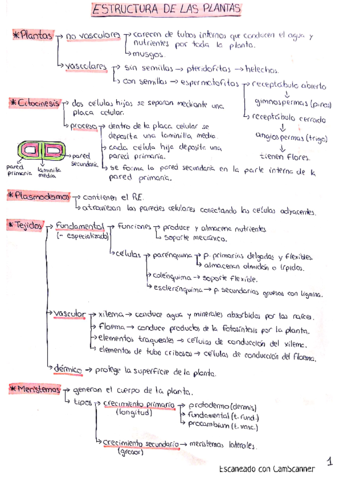 ESTRUCTURA DE LAS PLANTAS
* Plantas → no vasculares → carecen de tubos internos que conducen el agua y
nutrientes por toda la planta.
→ musgos.
→ vasculares → sin semillas → pteridofitas → helechos.
→ con semillas → espermatofitas → receptáculo abierto
↓
gimnospermas (pino)
→ receptáculo cerrado
↓
angiospermas (trigo)
↓
tienen flores.
* Citocinesis → dos células hijas se separan mediante una
placa celular.
→ proceso → dentro de la placa celular se
deposita una laminilla media.
→ cada célula hija deposita una
pared primaria.
→ se forma la pared secundaria en la parte interna de la
pared primaria.
pared primaria
laminilla media
pared secundaria
* Plasmodesmos → contienen el RE.
→ atraviesan las paredes celulares conectando las células adyacentes.
* Tejidos → Fundamental → Funciones → produce y almacena nutrientes
(- especializado) → soporte mecánico.
→ células → parénquima → p. primarias delgadas y flexibles.
→ almacena almidón o lípidos.
→ colénquima → soporte flexible.
→ esclerénquima → p. secundarias gruesas con lignina.
→ vascular → xilema → conduce agua y minerales absorbidos por las raíces.
→ floema → conduce productos de la fotosíntesis por la planta.
→ elementos traqueales → células de conducción del xilema.
→ elementos de tubo criboso → células de conducción del floema.
→ dérmico → protege la superficie de la planta.
* Meristemos → generan el cuerpo de la planta.
→ tipos → crecimiento primario → protodermo (dermis)
(longitud) → fundamental (t. fund.)
→ procambium (t. vasc.)
→ crecimiento secundario → meristemas laterales.
(grosor)
Escaneado con CamScanner
1